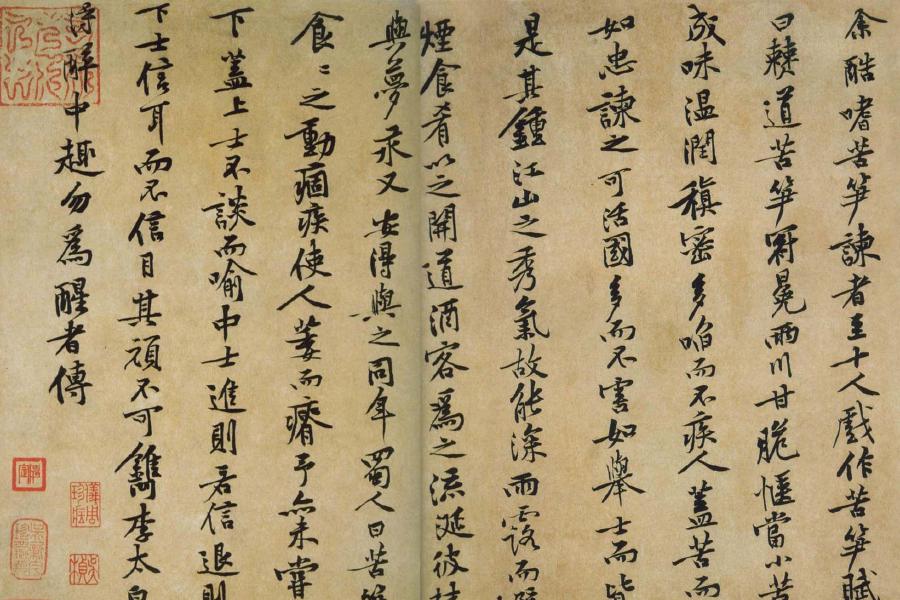 余酷嗜苦笋諫者至十人戲作苦笋賦
曰僰道苦笋冠冕兩川甘脆愜當小苦
成味温潤稹密多啗而不疾人蓋苦而
如忠諫之可活國多而不害如舉士而皆
是其鍾江山之秀氣故能深雨露而
煙食肴以之開道酒客為之流涎彼
與夢永又安得與之同年蜀人曰苦
食〻之動痼疾使人萎而瘠予亦未嘗
下蓋上士不談而喻中士進則若信退則
下士信耳而不信目其頑不可鐫李太白
詩醉中趣勿為醒者傳